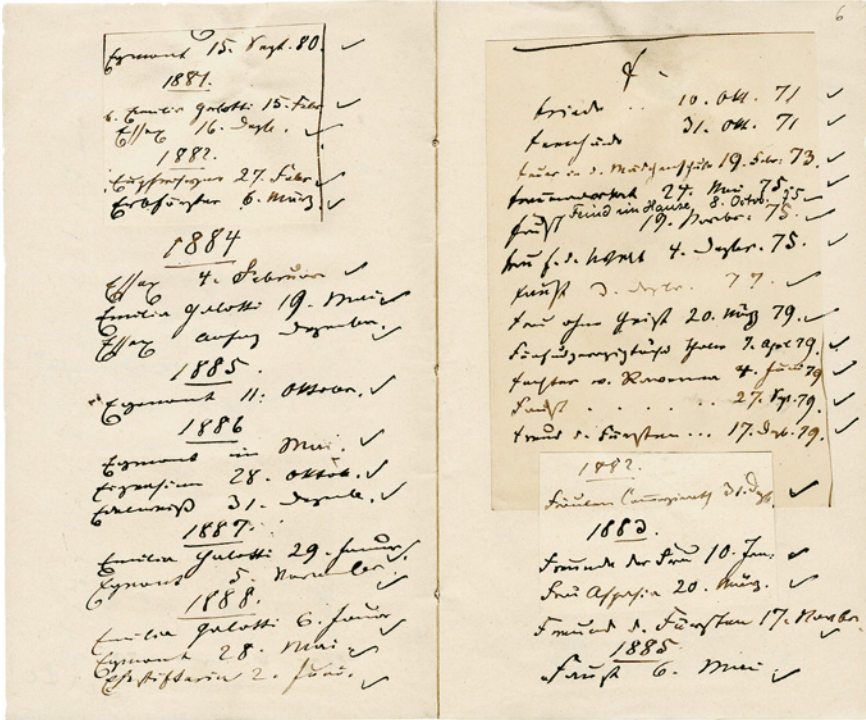 Egmont 15. Sept. 80.
1881.
Emilia Galotti 15. Febr
Essex 16. Dezbr.
1882.
27. Febr
Erbförster 6. März
1884
Essex 4. Februar
Emilia Galotti 19. Mai
Essex anfang Dezember.
1885.
Egmont 11. Oktober.
1886
Egmont im Mai.
28. Oktob.
Edelweiß 31. Dezemb.
1887.
Emilia Galotti 29. Januar
Egmont 5. November
1888.
Emilia Galotti 6. Januar
Egmont 28. Mai
Ehestifterin 2. Juni.
6
F.
10. Okt. 71
31. Okt. 71
Feuer in d. Mädchenschule 19. Febr. 73.
24. Mai 75.
Feind im Hause 8. Octob. 75
Faust 19. Novbr. 75.
4. Dezbr. 75.
Faust 3. Dezbr. 77.
Frau ohne Geist 20. März 79.
7. Apr. 79.
Fechter v. Ravenna 4. Juni 79
Faust . . . . . 27. Sep. 79.
Freund d. Fürsten ... 17. Dezb. 79.
1882.
Fräulein Commerzienrath 31. Dezb.
1883.
Freunde der Frau 10. Jan.
Frau Aspasia 20. März.
Freund d. Fürsten 17. Novbr.
1885
Faust 6. Mai